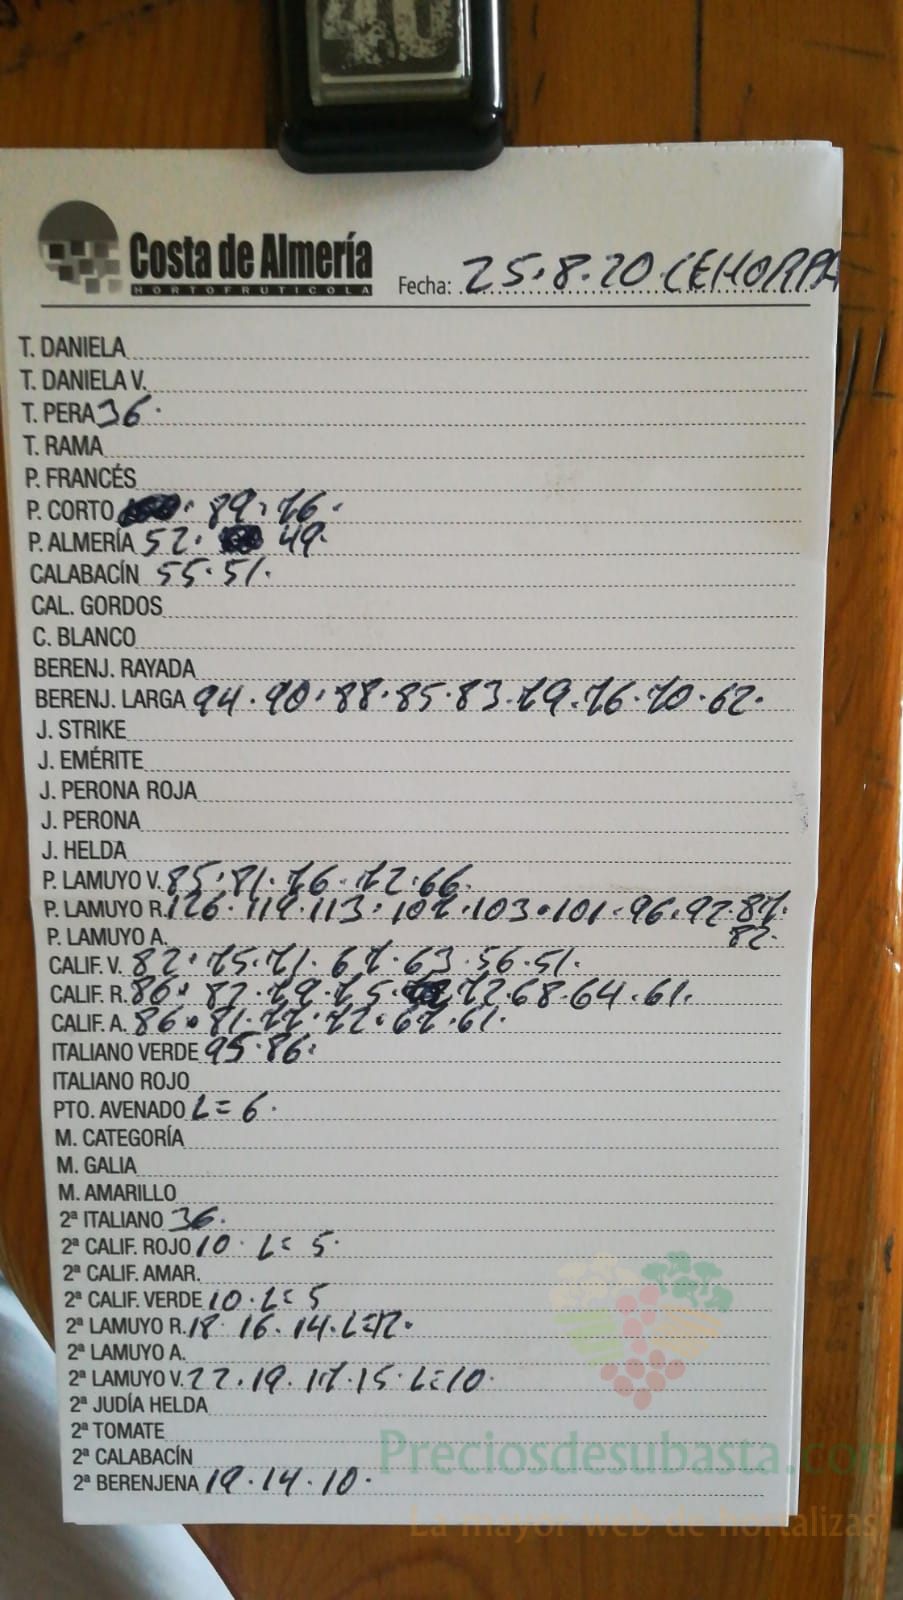 Costa de Almería
HORTOFRUTICOLA
Fecha: 25.8.20 CEHORPA
T. DANIELA
T. DANIELA V.
T. PERA 36.
T. RAMA
P. FRANCÉS
P. CORTO . 89. 76.
P. ALMERÍA 52. 49.
CALABACÍN 55.51.
CAL. GORDOS
C. BLANCO
BERENJ. RAYADA
BERENJ. LARGA 94.90.88.85.83.79.76.70.62.
J. STRIKE
J. EMÉRITE
J. PERONA ROJA
J. PERONA
J. HELDA
P. LAMUYO V. 85.81.76.72.66.
P. LAMUYO R. 126.119.113.107.103.101.96.92.87.
82.
P. LAMUYO A.
CALIF. V. 82.75.71.67.63.56.51.
CALIF. R. 86.82.79.75. 72.68.64.61.
CALIF. A. 86.81.77.72.67.61.
ITALIANO VERDE 95.86.
ITALIANO ROJO
PTO. AVENADO L=6.
M. CATEGORÍA
M. GALIA
M. AMARILLO
2ª ITALIANO 36.
2ª CALIF. ROJO 10. L= 5.
2ª CALIF. AMAR.
2ª CALIF. VERDE 10. L= 5
2ª LAMUYO R. 18 16. 14. L=12.
2ª LAMUYO A.
2ª LAMUYO V. 22.19.17.15. L=10.
2ª JUDÍA HELDA
2ª TOMATE
2ª CALABACÍN
2ª BERENJENA 19.14.10.
Preciosdesubasta.com
La mayor web de hortalizas